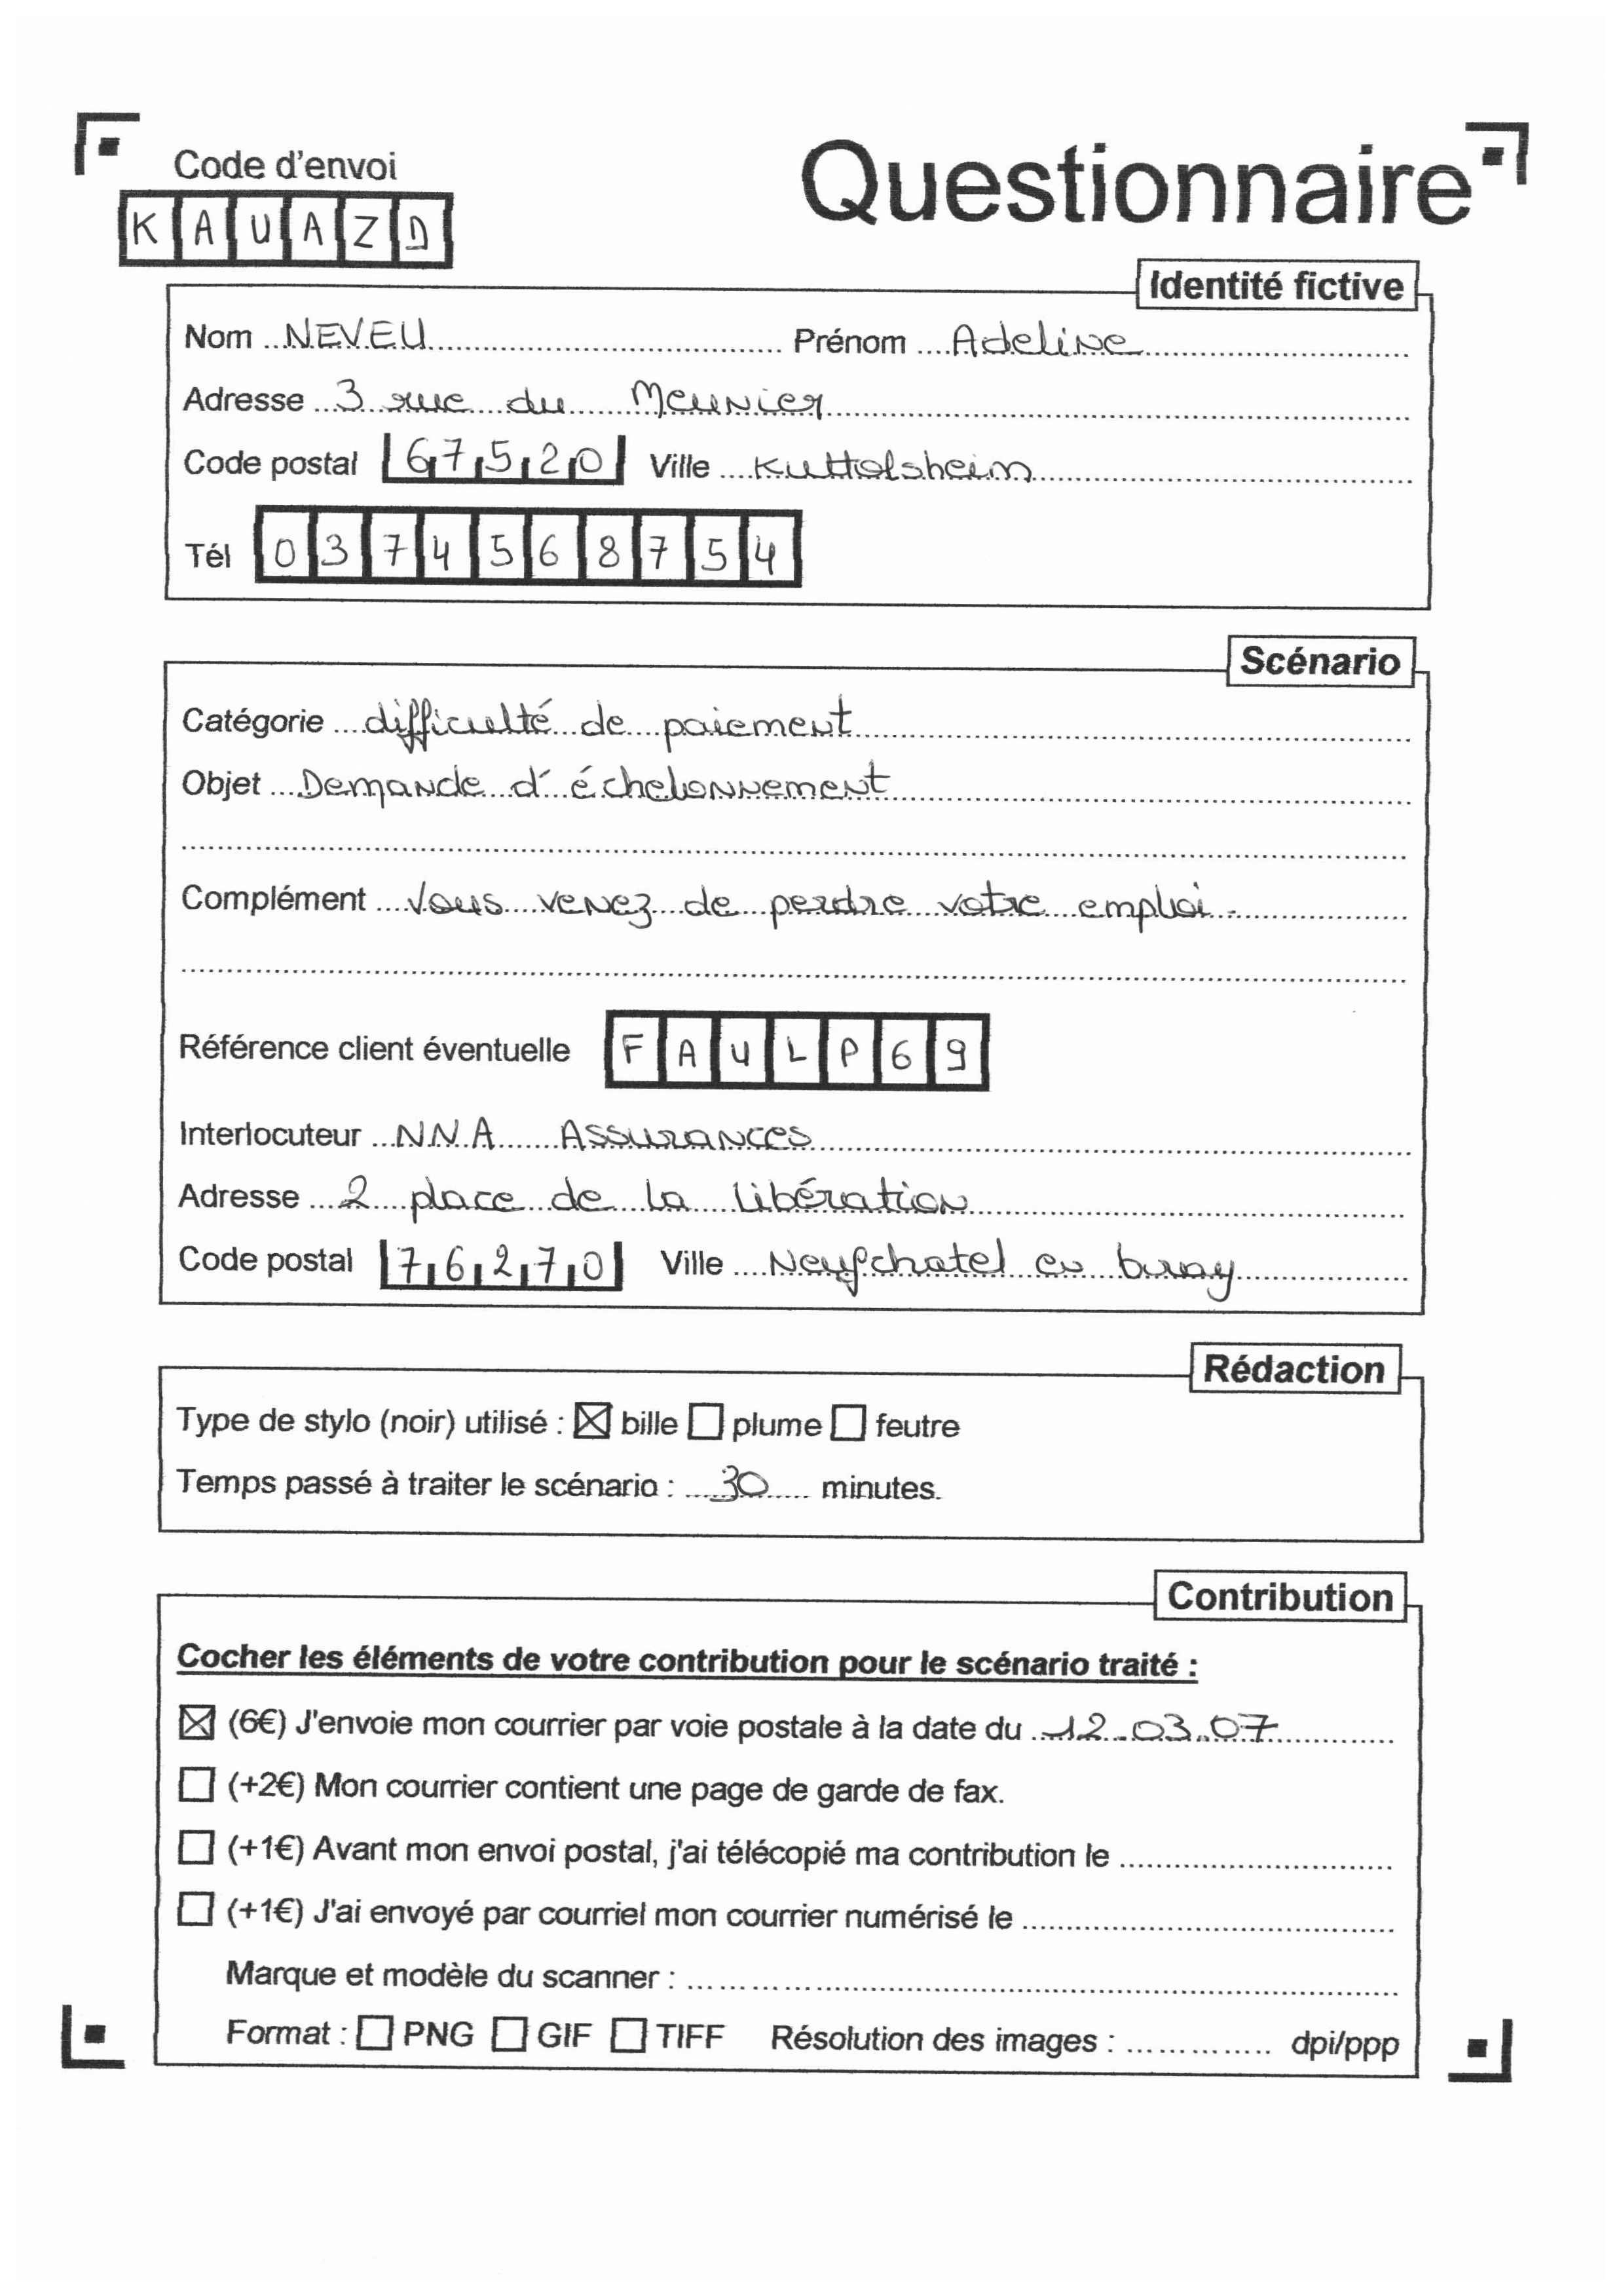 Code d'envoi
Questionnaire
KAUAZD
Identité fictive
Nom NEVEU Prénom Adeline
Adresse 3 rue du Meunier
Code postal 67520 Ville Kuttolsheim
Tél 0374568754
Scénario
Catégorie difficulté de paiement
Objet Demande d'échelonnement
Complément Vous venez de perdre votre emploi.
Référence client éventuelle FAULP69
Interlocuteur NNA Assurances
Adresse 2 place de la libération
Code postal 76270 Ville Neufchatel en bray
Rédaction
Type de stylo (noir) utilisé : ☒ bille ☐ plume ☐ feutre
Temps passé à traiter le scénario : 30 minutes.
Contribution
Cocher les éléments de votre contribution pour le scénario traité :
☒ (6€) J'envoie mon courrier par voie postale à la date du 12.03.07
☐ (+2€) Mon courrier contient une page de garde de fax.
☐ (+1€) Avant mon envoi postal, j'ai télécopié ma contribution le
☐ (+1€) J'ai envoyé par courriel mon courrier numérisé le
Marque et modèle du scanner :
Format : ☐ PNG ☐ GIF ☐ TIFF Résolution des images : dpi/ppp